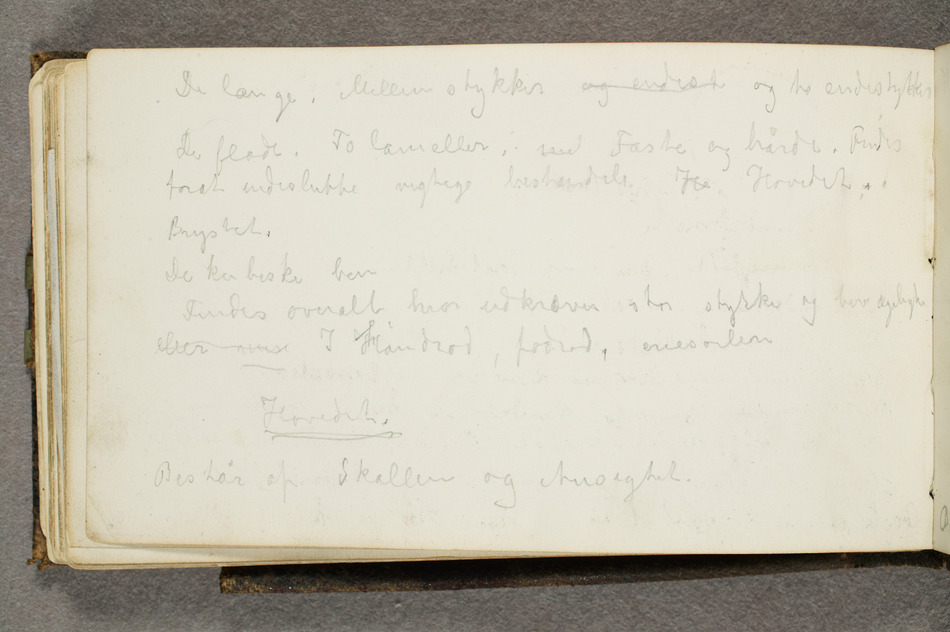 De lange. Mellemstykker og endest og to endestykker
De flade. To lameller, med Faste og hårde. Findes
forat indeslutte vigtige bestandele He Hovedet,.
Brystet.
De kubiske ben
Findes overalt hvor udkræver stor stykke og bevægelighe
eller I Håndrod, fodrod,
Hovedet.
Består af Skallen og Ansigtet.